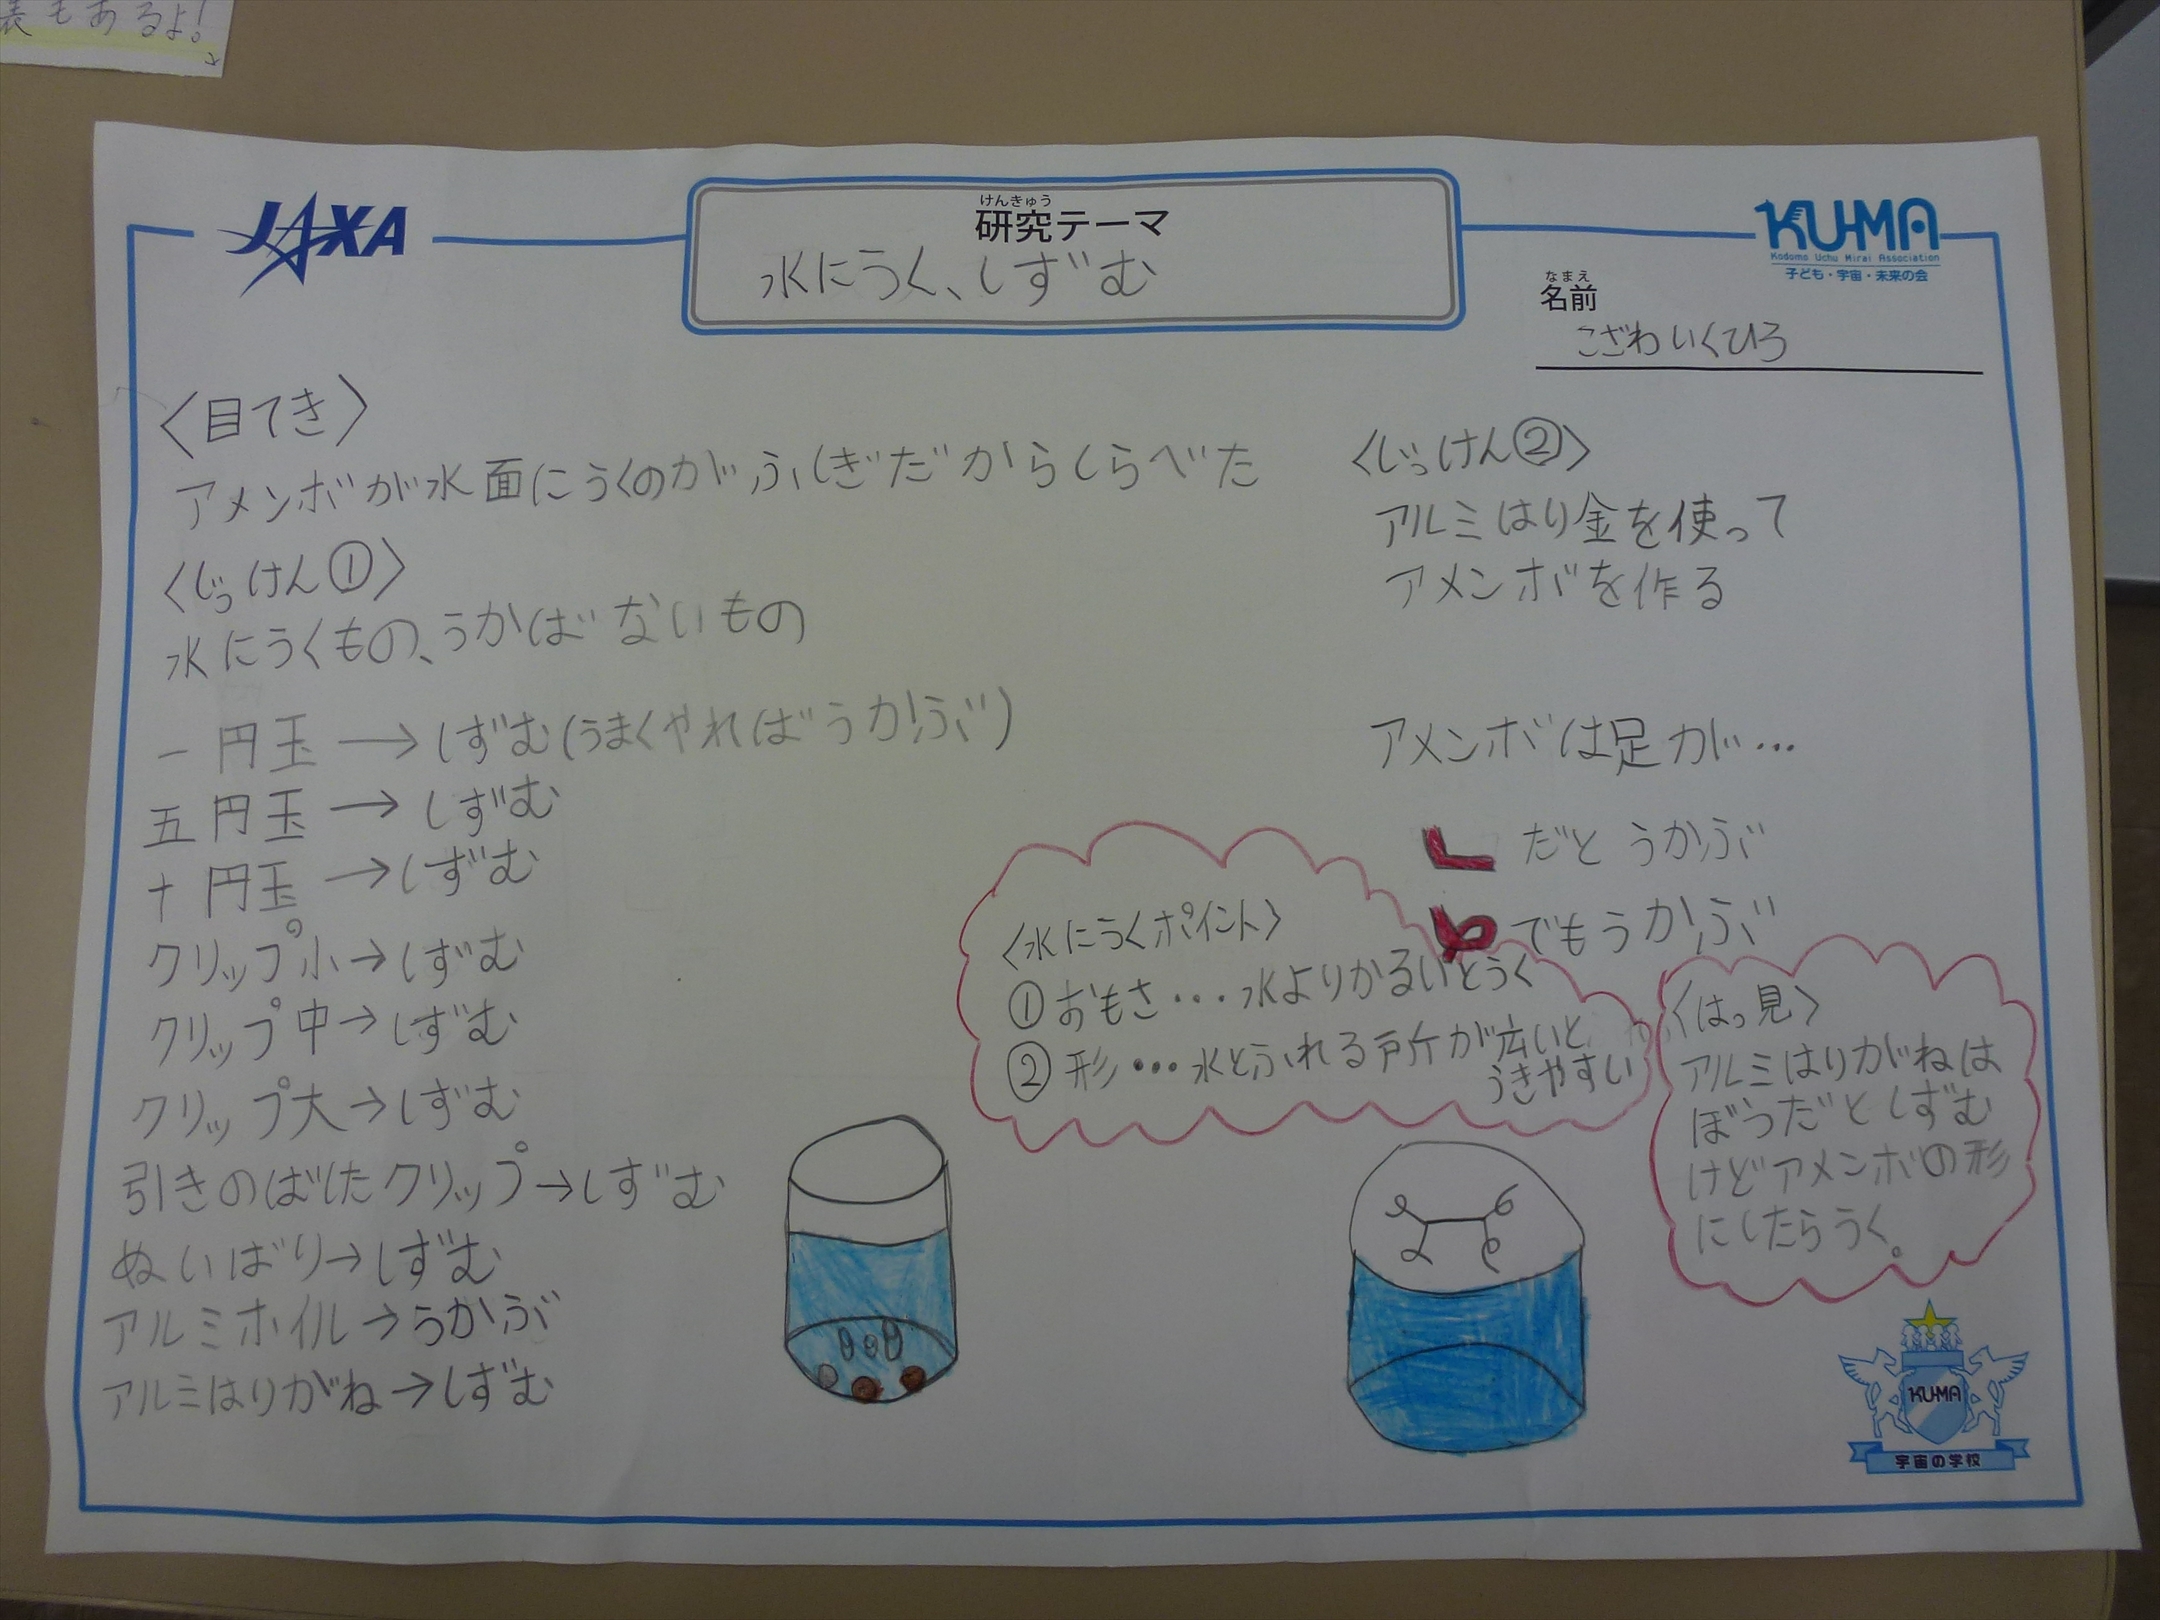 表もあるよ!
JAXA
けんきゅう
研究テーマ
水にうく、しずむ
KU-MA
Kodomo Uchu Mirai Association
子ども・宇宙・未来の会
なまえ
名前
こざわいくひろ
〈目てき〉
アメンボが水面にうくのがふしぎだからしらべた
〈じっけん①〉
水にうくもの、うかばないもの
一円玉→しずむ(うまくやればうかぶ)
五円玉→しずむ
十円玉→しずむ
クリップ小→しずむ
クリップ中→しずむ
クリップ大→しずむ
引きのばしたクリップ→しずむ
ぬいばり→しずむ
アルミホイル→うかぶ
アルミはりがね→しずむ
〈じっけん②〉
アルミはり金を使って
アメンボを作る
アメンボは足が…
だとうかぶ
でもうかぶ
〈水にうくポイント〉
①おもさ…水よりかるいとうく
②形…水とふれる所が広いと
うきやすい
〈はっ見〉
アルミはりがねは
ぼうだとしずむ
けどアメンボの形
にしたらうく。
KU-MA
宇宙の学校